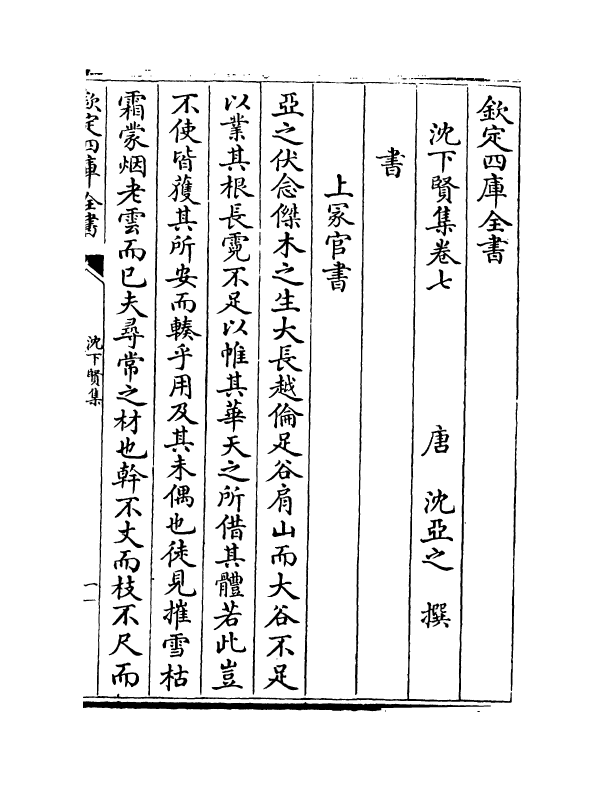 欽定四庫全書
沈下賢集卷七
唐 沈亞之 撰
書
上冢官書
亞之伏念傑木之生大長越倫足谷肩山而大谷不足
以業其根長霓不足以帷其華天之所借其體若此豈
不使皆獲其所安而輳乎用及其未偶也徒見摧雪枯
霜蒙烟老雲而已夫尋常之材也幹不丈而枝不尺而
欽定四庫全書
沈下賢集
一